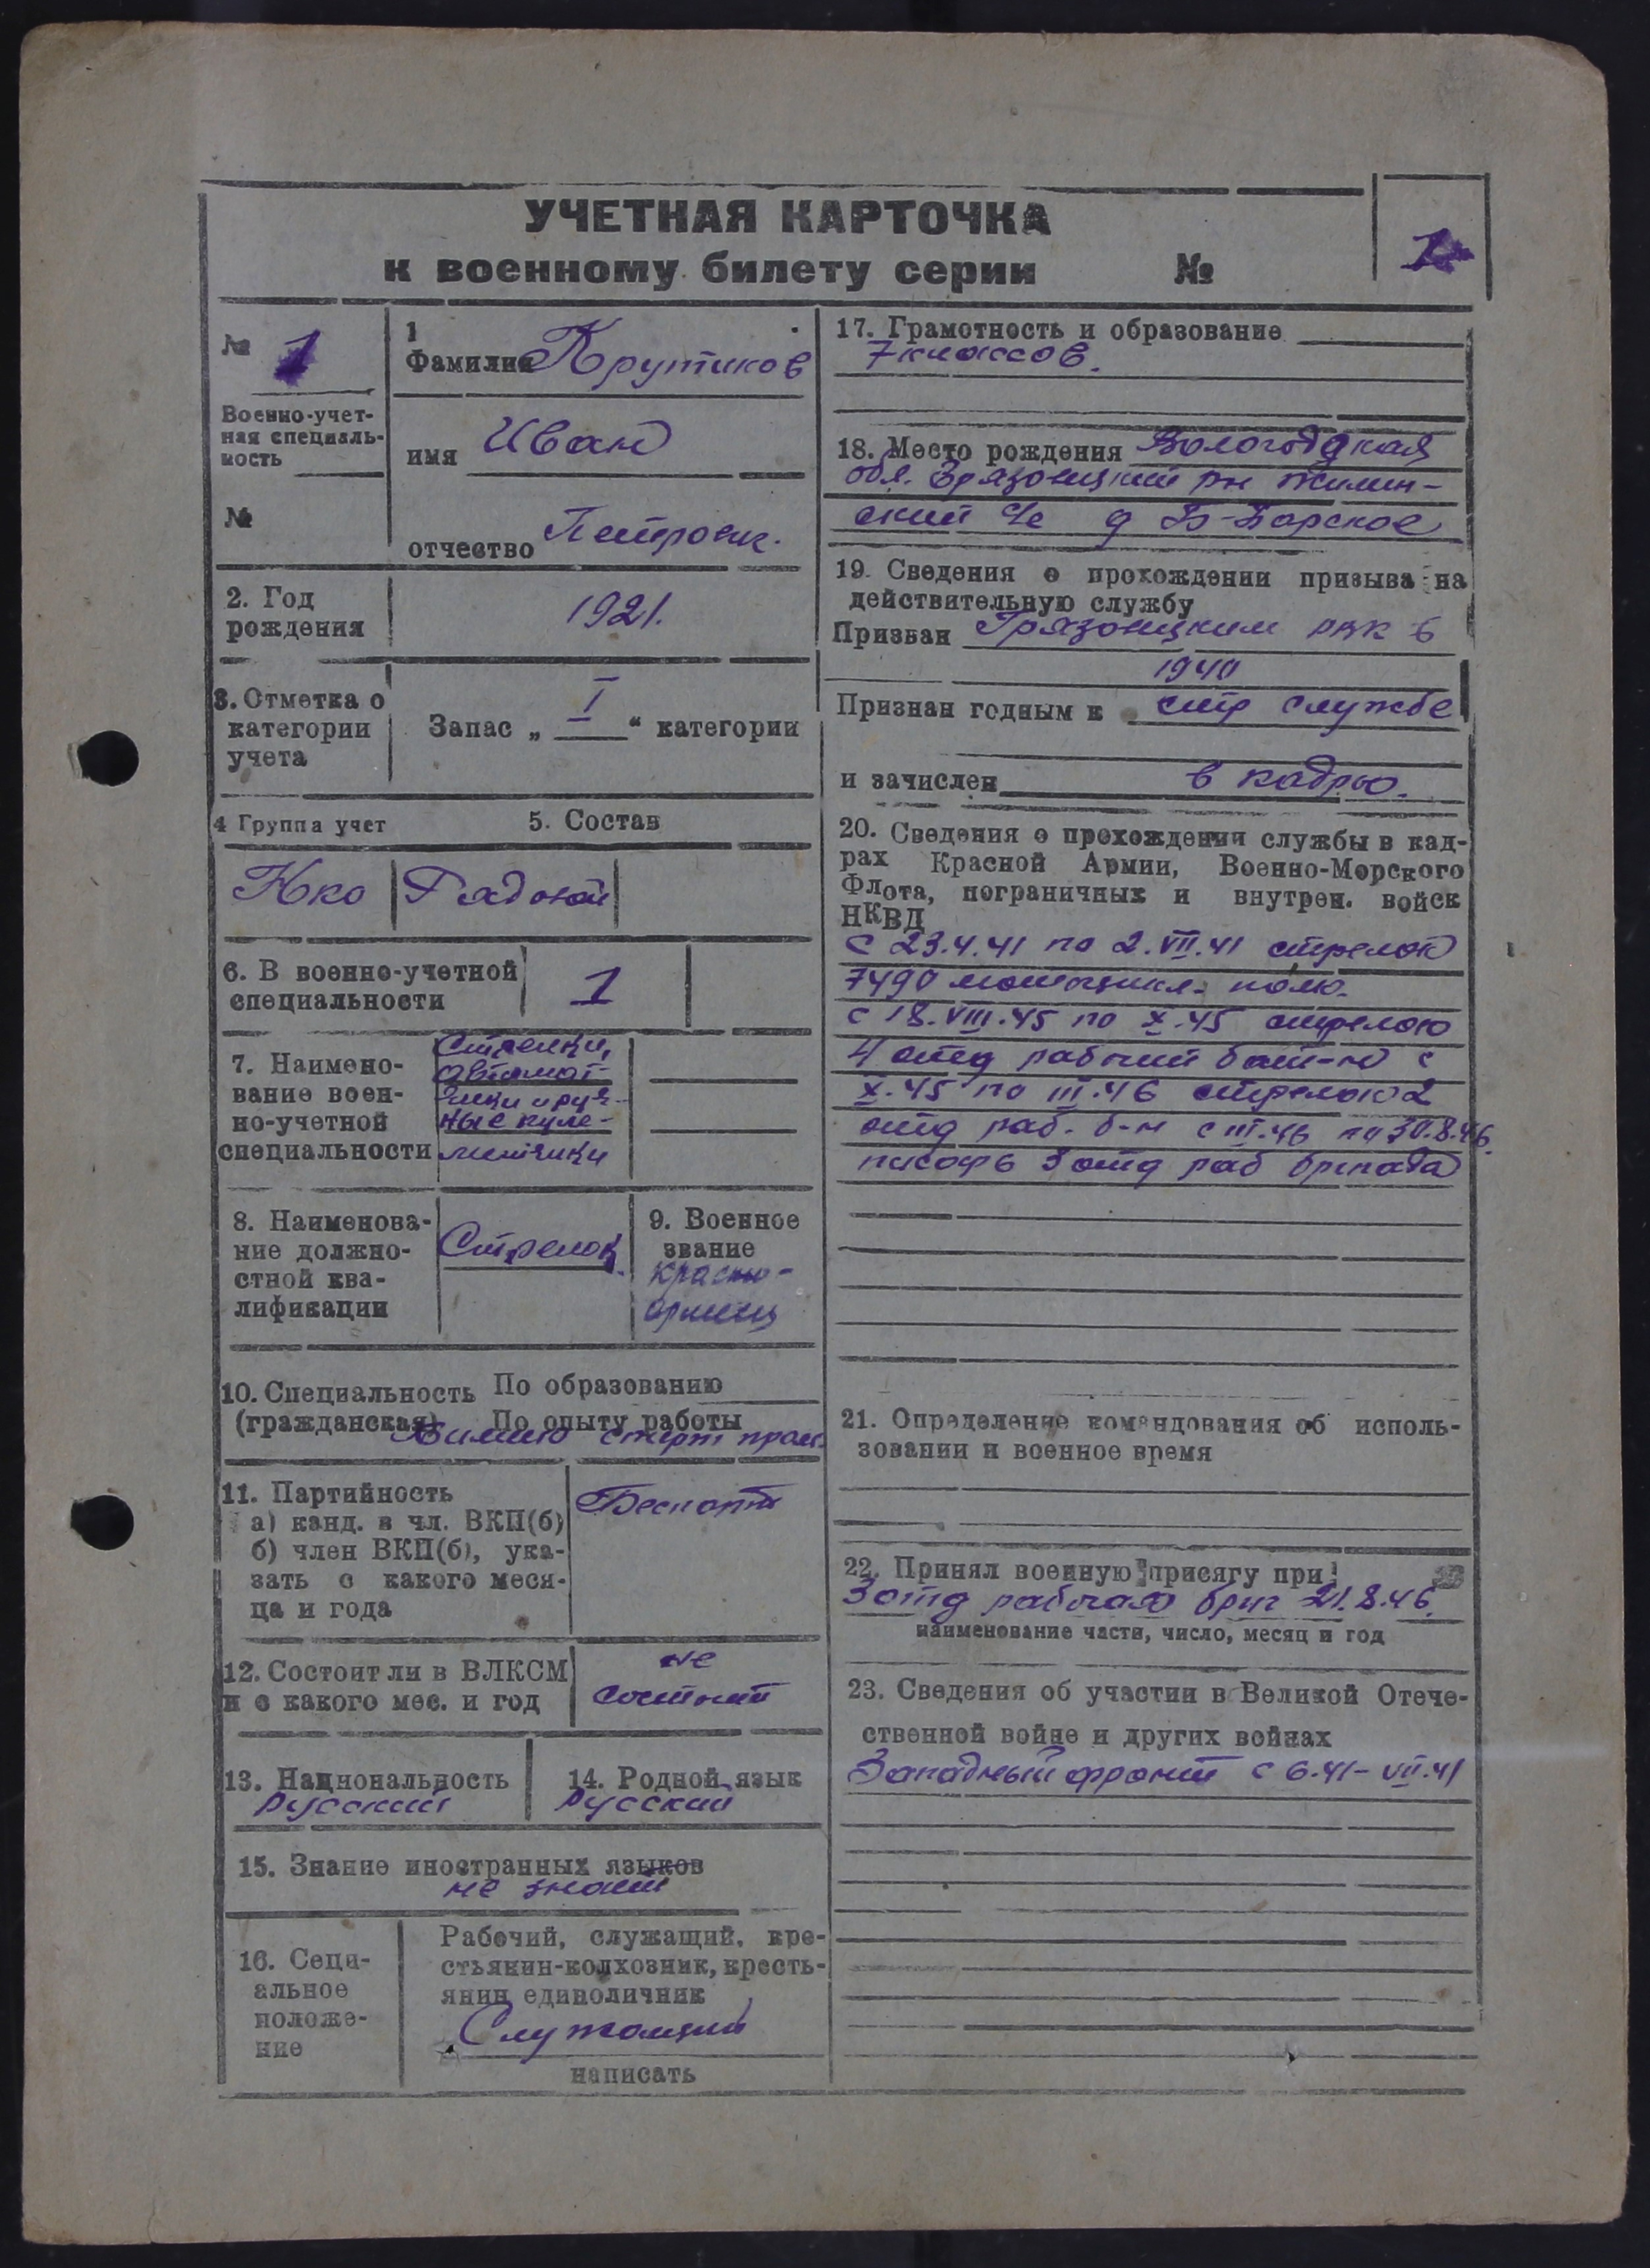 УЧЕТНАЯ КАРТОЧКА
к военному билету серии №
1
№ 1
Военно-учет-
ная специаль-
ность
№
1
Фамилия Крутиков
имя Иван
отчество Петрович.
2. Год
рождения
1921.
3. Отметка о
категории
учета
Запас „ I “ категории
4 Группа учет
5. Состав
Рядовой
6. В военно-учетной
специальности
1
7. Наимено-
вание воен-
но-учетной
специальности
Стрелки,
автомат-
чики и руч-
ные пуле-
метчики
8. Наименова-
ние должно-
стной ква-
лификации
Стрелок
9. Военное
звание
красно-
армеец
10. Специальность По образованию
(гражданская) По опыту работы
11. Партийность
а) канд. в чл. ВКП(б)
б) член ВКП(б), ука-
зать с какого меся-
ца и года
Беспарт
12. Состоит ли в ВЛКСМ
и с какого мес. и год
не
состоит
13. Национальность
русский
14. Родной язык
русский
15. Знание иностранных языков
не знает
16. Соци-
альное
положе-
ние
Рабочий, служащий, кре-
стьянин-колхозник, кресть-
янин единоличник
Служащий
написать
17. Грамотность и образование
7 классов.
18. Место рождения Вологодская
обл. Грязовецкий рн Жилин-
ский с/с д Б-Барское
19. Сведения о прохождении призыва на
действительную службу
Призван Грязовецким рвк в
1940
Признан годным к стр службе
и зачислен в кадры.
20. Сведения о прохождении службы в кад-
рах Красной Армии, Военно-Морского
Флота, пограничных и внутрен. войск
НКВД
с 23.4.41 по 2.VII.41 стрелок
7490 мотоцикл. полк.
с 18.VIII.45 по X.45 стрелок
4 отд рабочий бат-н с
X.45 по III.46 стрелок 2
отд раб. б-н с III.46 по 30.8.46.
писарь 3 отд раб бригада
21. Определение командования об исполь-
зовании и военное время
22. Принял военную присягу при
3 отд рабочая бриг 21.8.46.
наименование части, число, месяц и год
23. Сведения об участии в Великой Отече-
ственной войне и других войнах
Западный фронт с 6.41 - VII.41